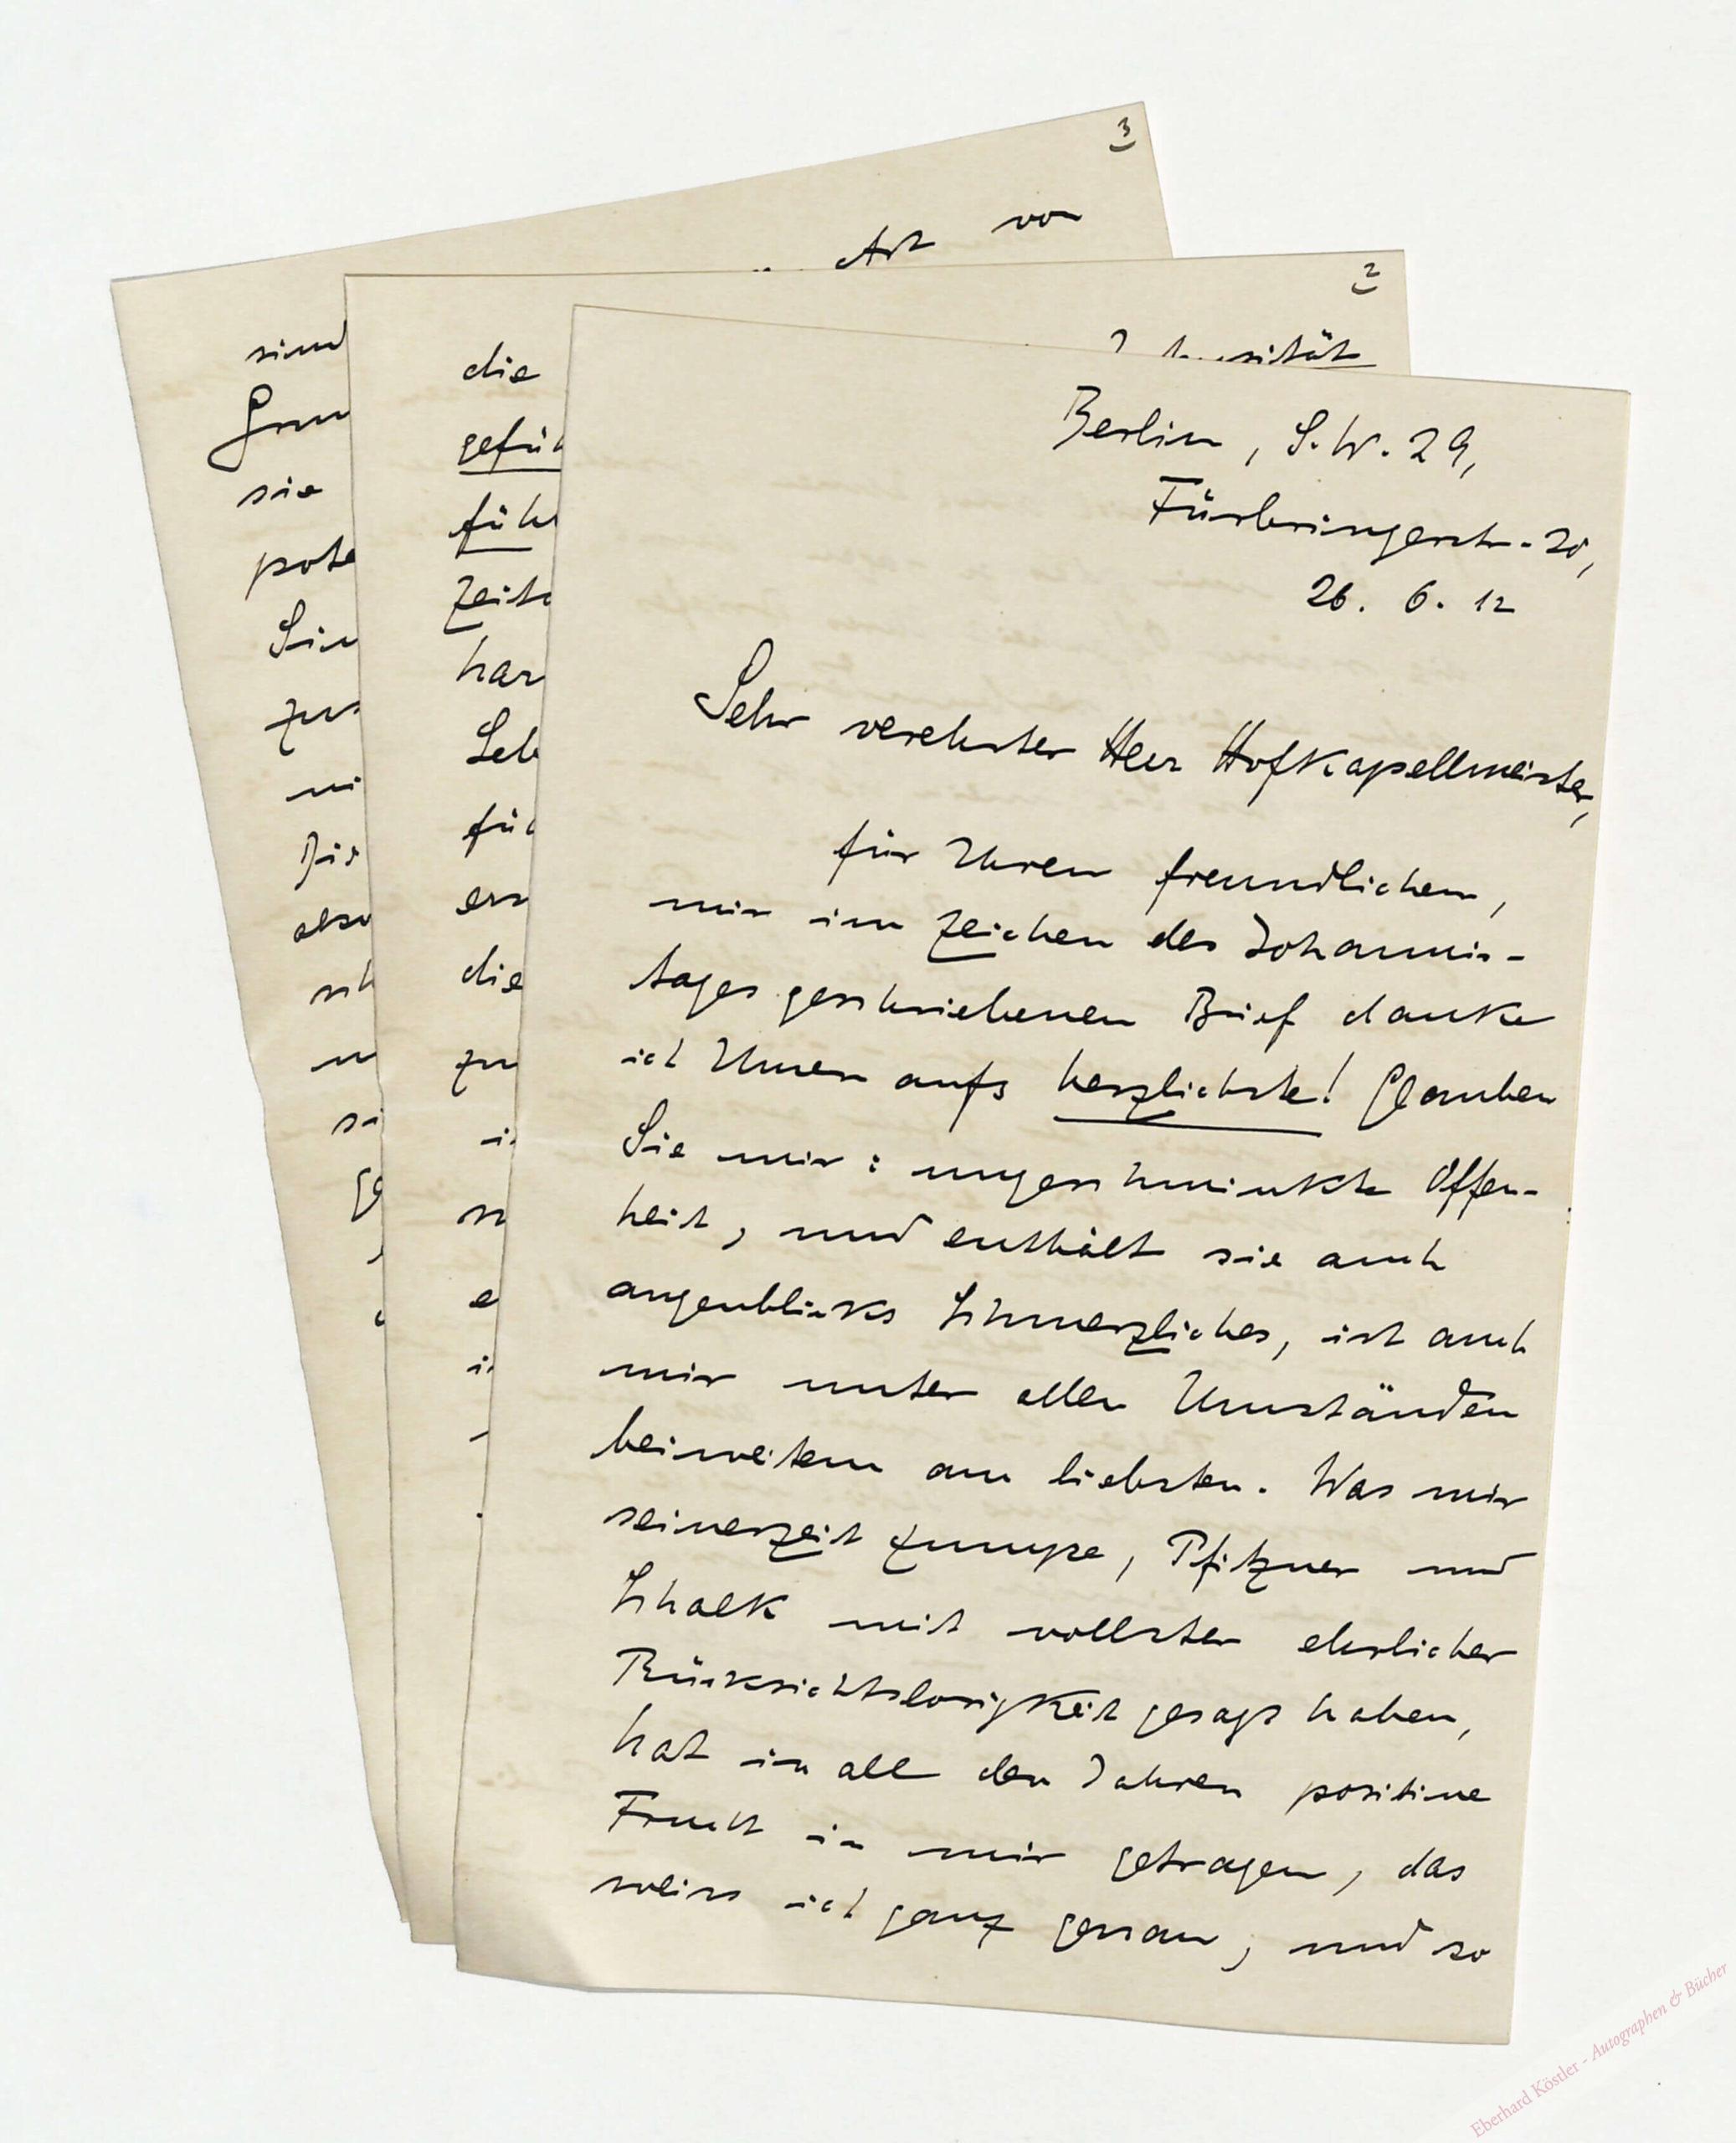 3
Art von
sind
sie
2
die
Berlin, S.W. 29,
Fürbringerstr. 20,
26. 6. 12
Sehr verehrter Herr Hofkapellmeister,
für Ihren freundlichen,
mir im Zeichen des Johannis-
tages geschriebenen Brief danke
ich Ihnen aufs herzlichste! Glauben
Sie mir: ungeschminkte Offen-
heit, und enthält sie auch
augenblicks Schmerzliches, ist auch
mir unter allen Umständen
beiweitem am liebsten. Was mir
seinerzeit Zumpe, Pfitzner und
Schalk mit vollster ehrlicher
Rücksichtslosigkeit gesagt haben,
hat in all den Jahren positive
Frucht in mir getragen, das
weiss ich ganz genau, und so
Eberhard Köstler - Autographen & Bücher